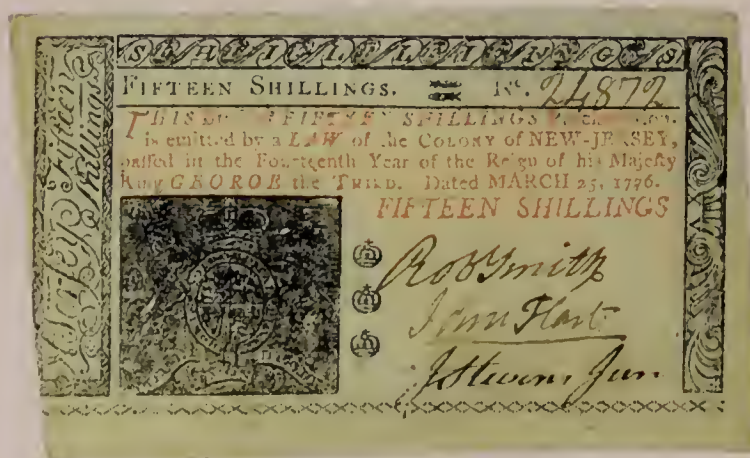 SHEIGLELEIENGS
FIFTEEN SHILLINGS. No. 24872
THIS FIFTEEN SHILLINGS
is emitted by a LAW of the COLONY of NEW-JERSEY,
passed in the Fourteenth Year of the Reign of his Majesty
King GEORGE the THIRD. Dated MARCH 25, 1776.
FIFTEEN SHILLINGS
Jersey Fifteen Shillings
Rob Smith
John Hart
J Stevens Jun